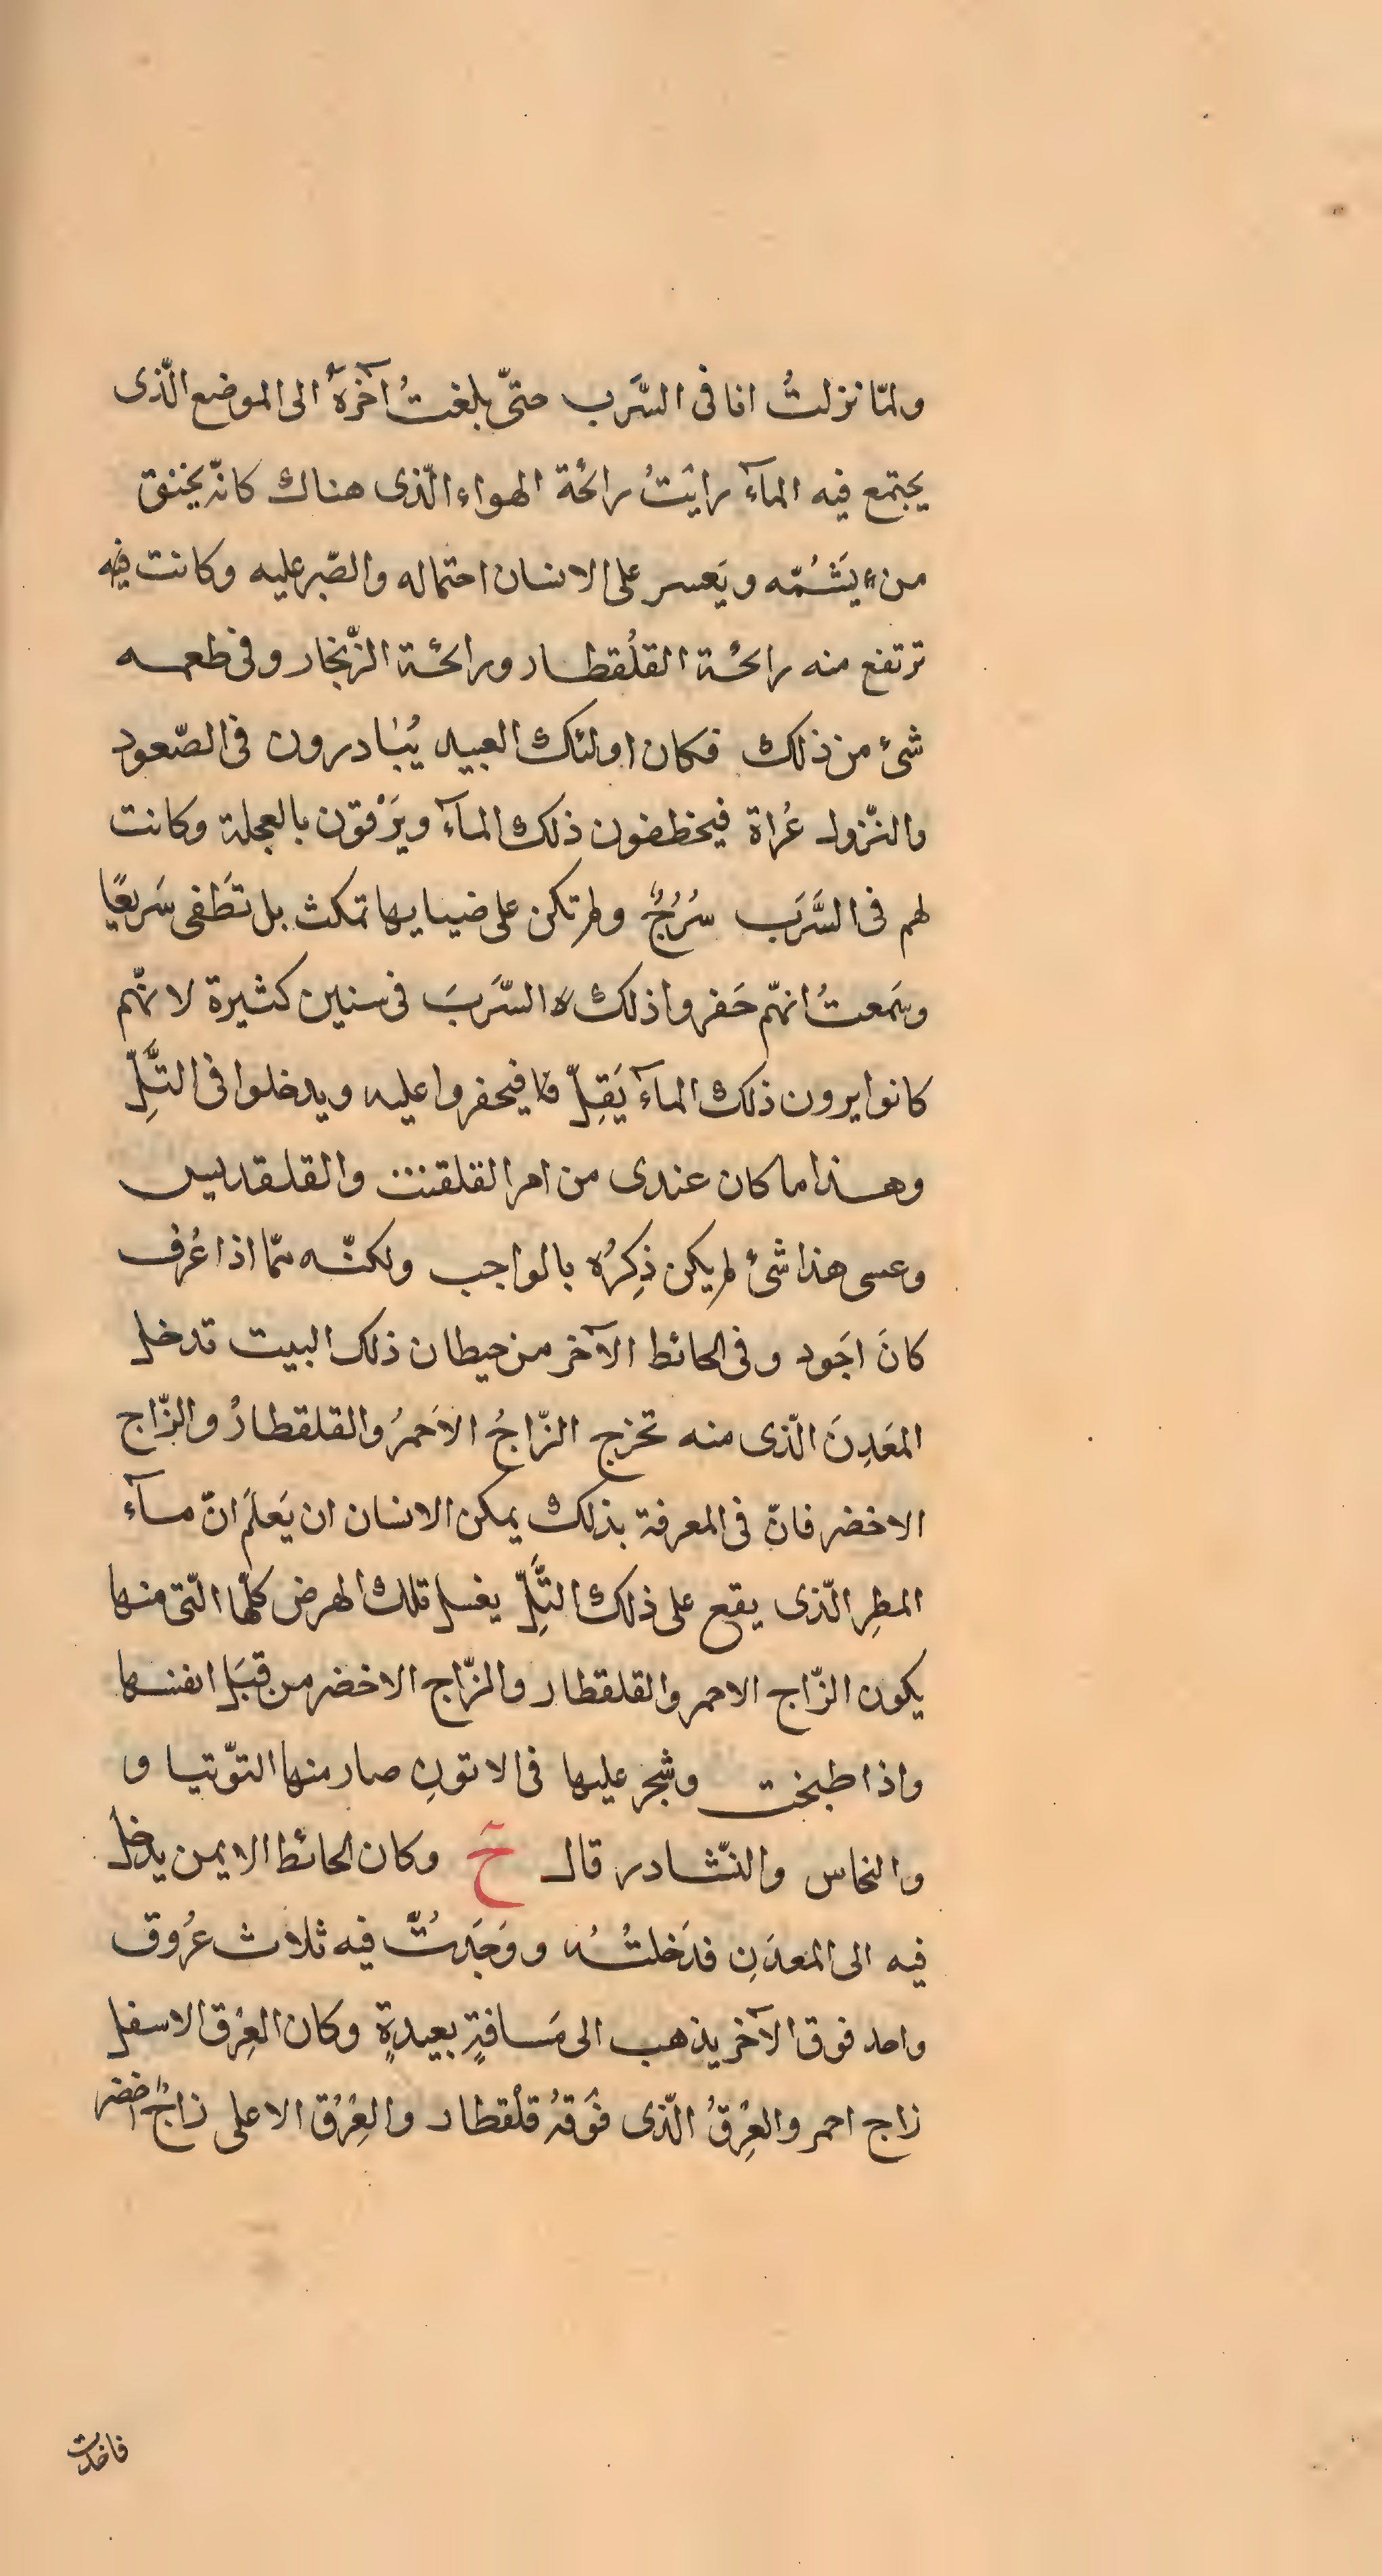 ولمّا نزلتُ انا فى السَّرَب حتىّ بلغتُ آخرهُ الى الموضع الّذى
يجتمع فيه المآء رايَتُ رائحة الهواء الّذى هناك كانّه يخنق
من يَشُمّه ويَعسر على الانسان احتماله والصّبر عليه وكانت فيه
ترتفع منه رائحة القلُقطار ورائحة الزّنجار وفى طعمه
شئ من ذلك فكان اولئك العبيد يُبادرون فى الصّعود
والنّزول عُراة فيخطفون ذلك المآء ويَرْقون بالعجلة وكانت
لهم فى السَّرَب سُرُجٌ ولم تكن على ضيايها تمكث بل تَطَفى سَريعًا
وسَمعتُ انهّم حَفروا ذلك السَّرَبَ فى سنين كثيرة لانّهم
كانوا يرون ذلك المآء يَقِلّ فيحفروا عليه ويدخلوا فى التَّلِّ
وهذا ما كان عندى من امر القلقنت والقلقديس
وعسى هذا شئ لم يكن ذِكرُه بالواجب ولكنّه ممّا اذا عُرف
كانَ اجَود وفى الحائط الآخر من حيطان ذلك البيت تدخل
المعَدِنَ الّذى منه تخرج الزّاجُ الاَحمرُ والقلقطارُ والزّاج
الاخضر فانّ فى المعرفة بذلك يمكن الانسان ان يَعلَم انّ مآء
المطرِ الّذى يقع على ذلك التَّلِّ يغسل تلك الهرض كلّها الّتى منها
يكون الزّاج الاحمر والقلقطار والزّاج الاخضر من قِبَل انفسها
واذا طبخت وشجر عليها فى الاتونِ صار منها التوّتيا و
والنحاس والنّشادر قال حَ وكان الحائط الايمن يدخل
فيه الى المعدَنِ فدَخلتُهُ ووَجَدتُّ فيه ثلاث عرُوق
واحد فوق الآخر يذهب الى مَسافةٍ بعيدةٍ وكان العِرْق الاسفل
زاج احمر والعِرْقُ الّذى فَوقهُ قلُقطار والعِرْق الاعلى زاجٌ اخضر
فاخذت